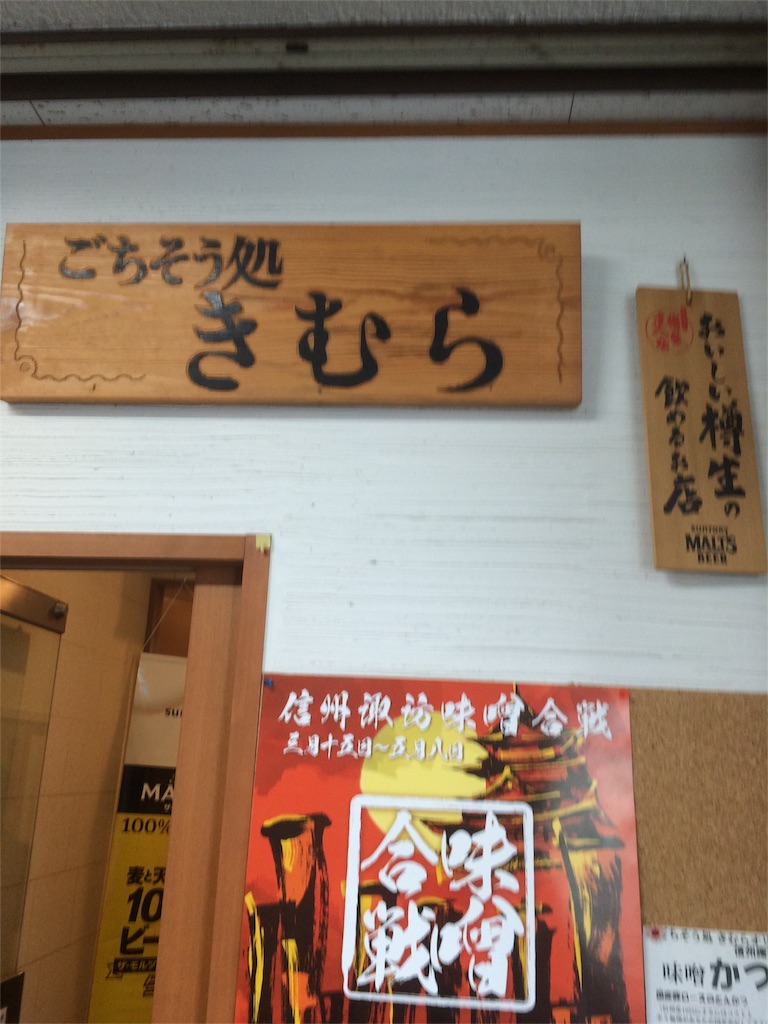 ごちそう処
きむら
おいしい樽生の
飲めるお店
SUNTORY
MALT'S
BEER
信州諏訪味噌合戦
三月十五日～五月八日
味噌
合戦
MA
100%
麦と天
10
ビー
ちそう処 きむら
味噌かつ